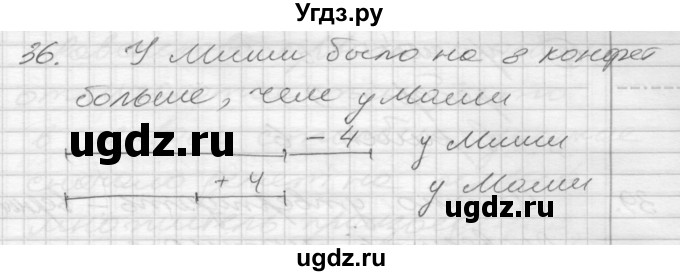 Угдз.ру
36. У Миши было на 8 конфет
больше, чем у Маши
ugdz.ru ugdz.ru
- 4 у Миши
+ 4 у Маши
ugdz.ru ugdz.ru
ugdz.ru